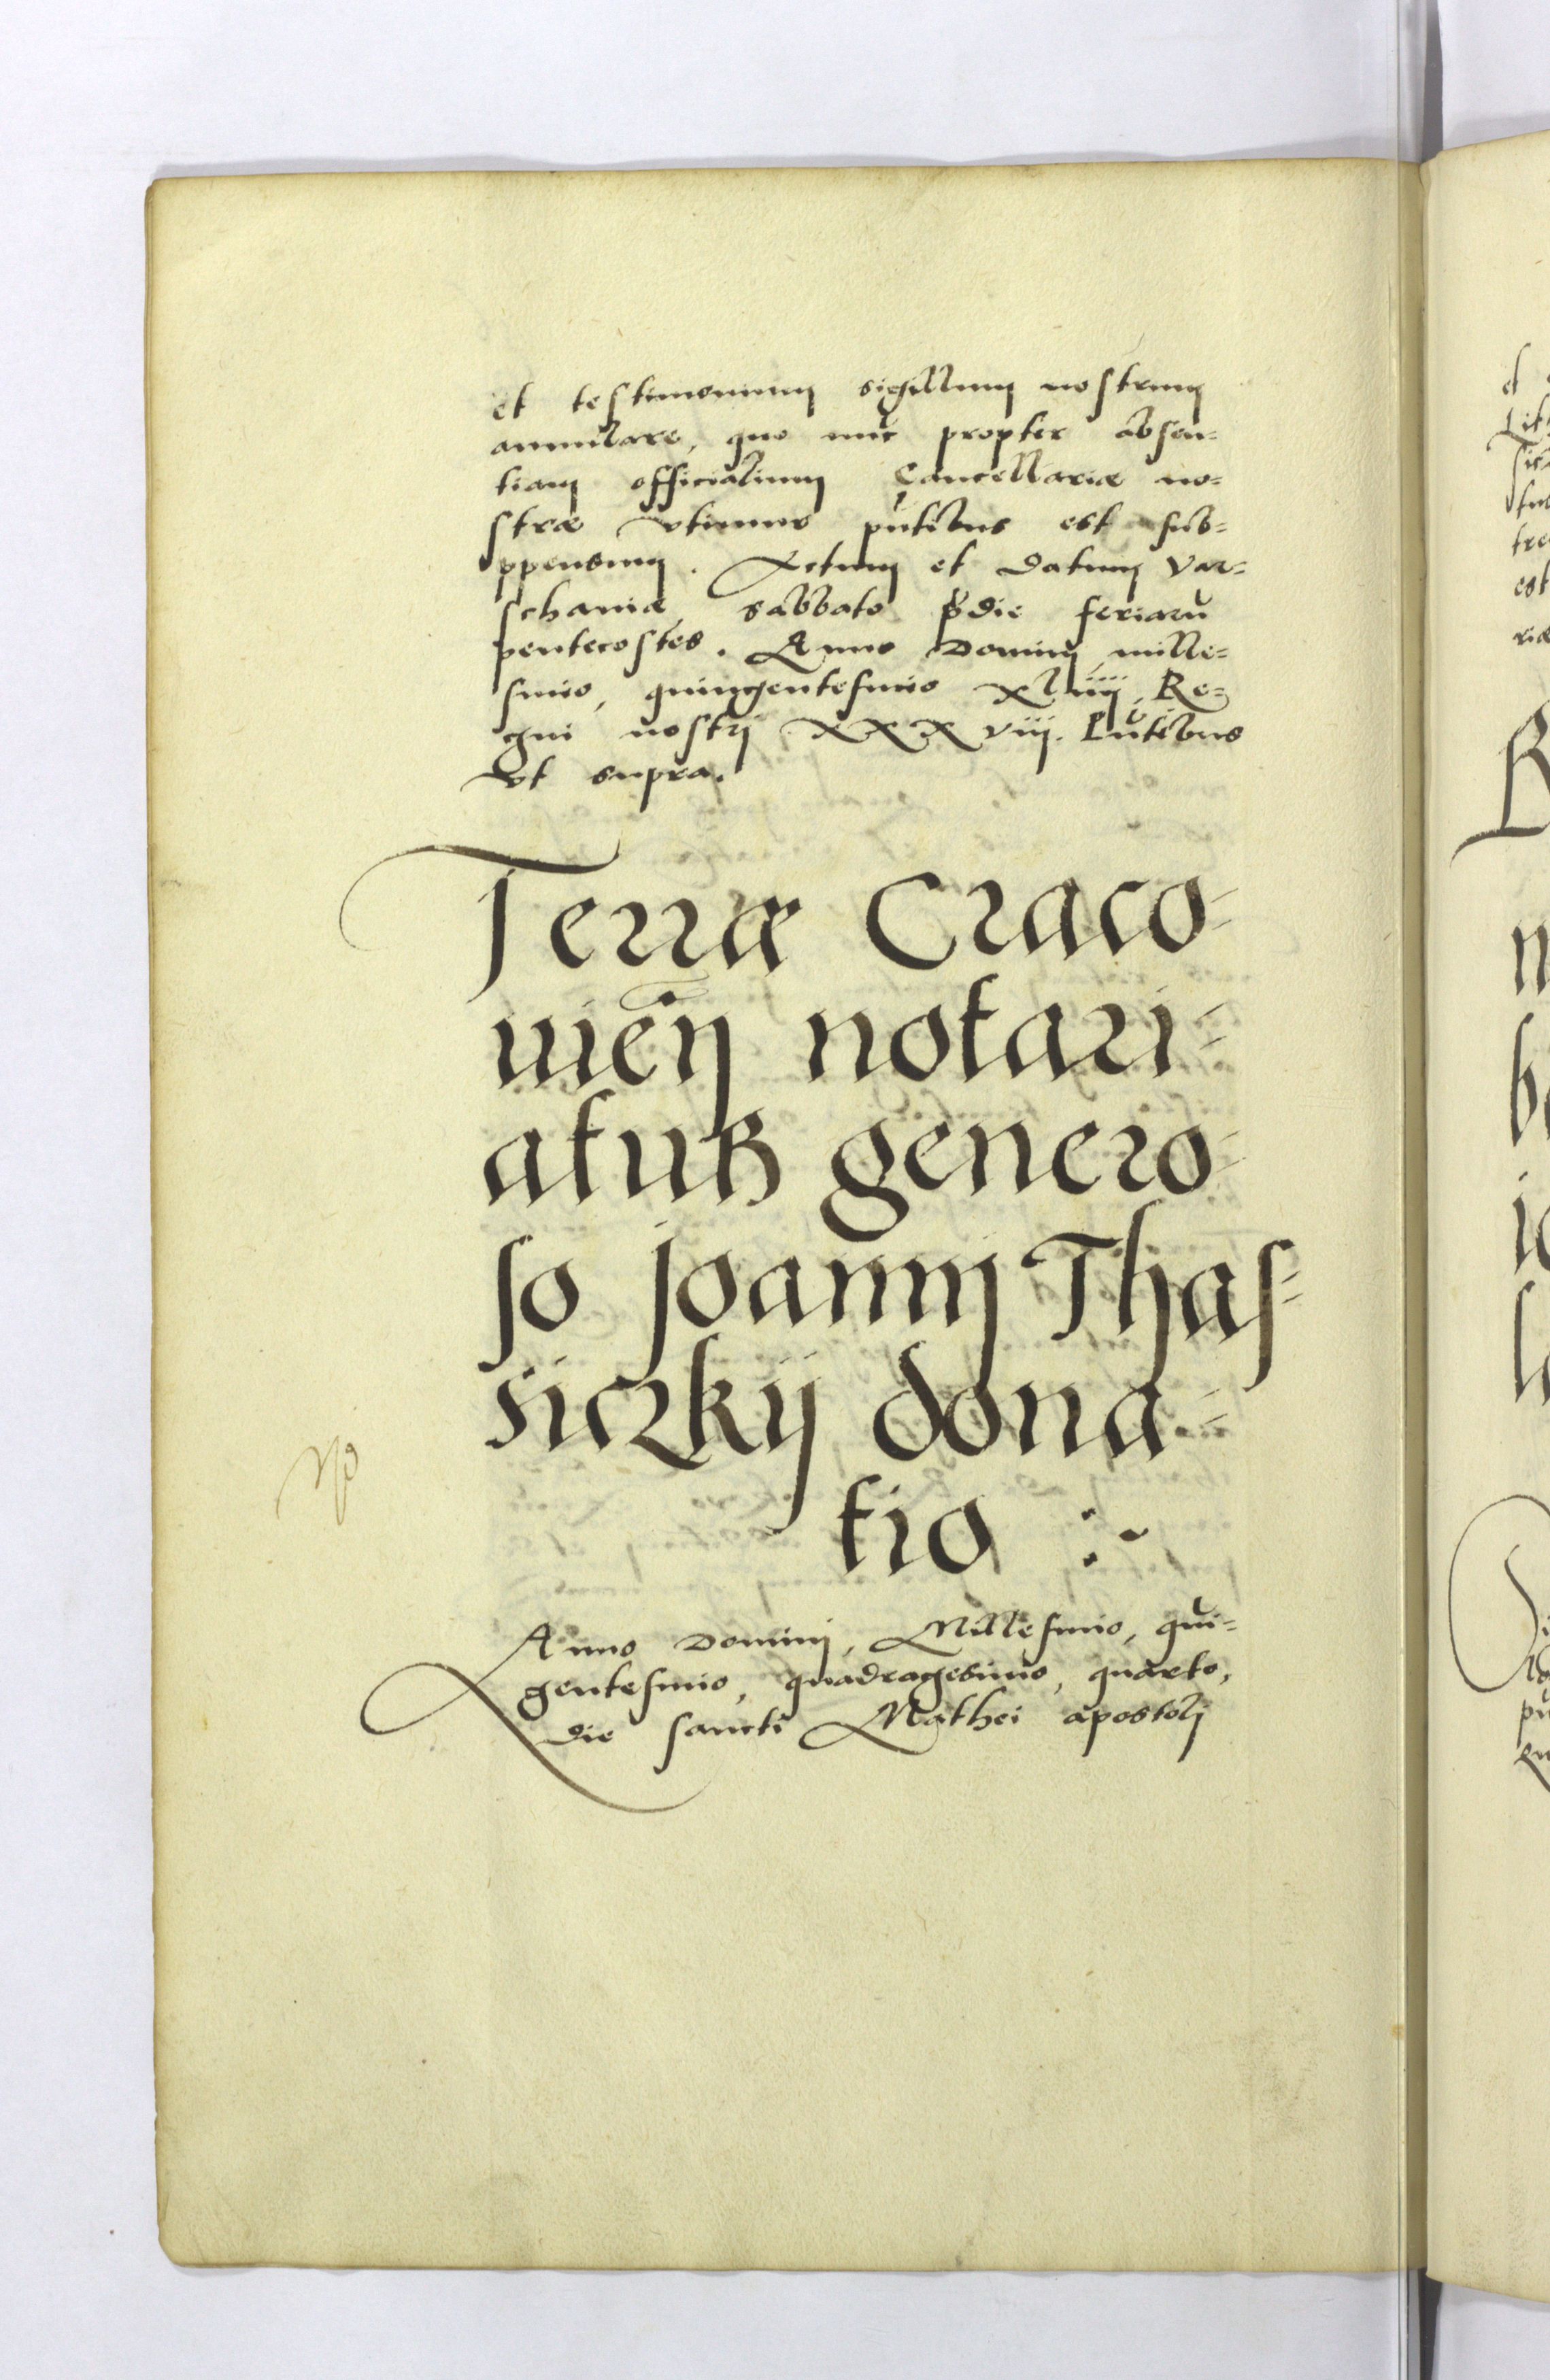 et testimonium sigillum nostrum
annulare, quo nūc propter absen=
tiam officialium Cancellariæ no=
stræ vtimur pn̄tibus est sub=
ppensum. Actum et datum Var=
schaviæ, sabbato p̄die feriarū
pentecostes. Anno Dominj mille=
simo, quingentesimo xliiij, Re=
gni nostrj XXXviij. Pn̄tibus
vt supra.
Terræ Craco=
vien̄ notari=
atus genero=
so joannij Thas=
siczkij dona=
tio :~
Anno Dominj, Millesimo, quī=
gentesimo, quadragesimo, quarto,
die sancti Mathei apostolj